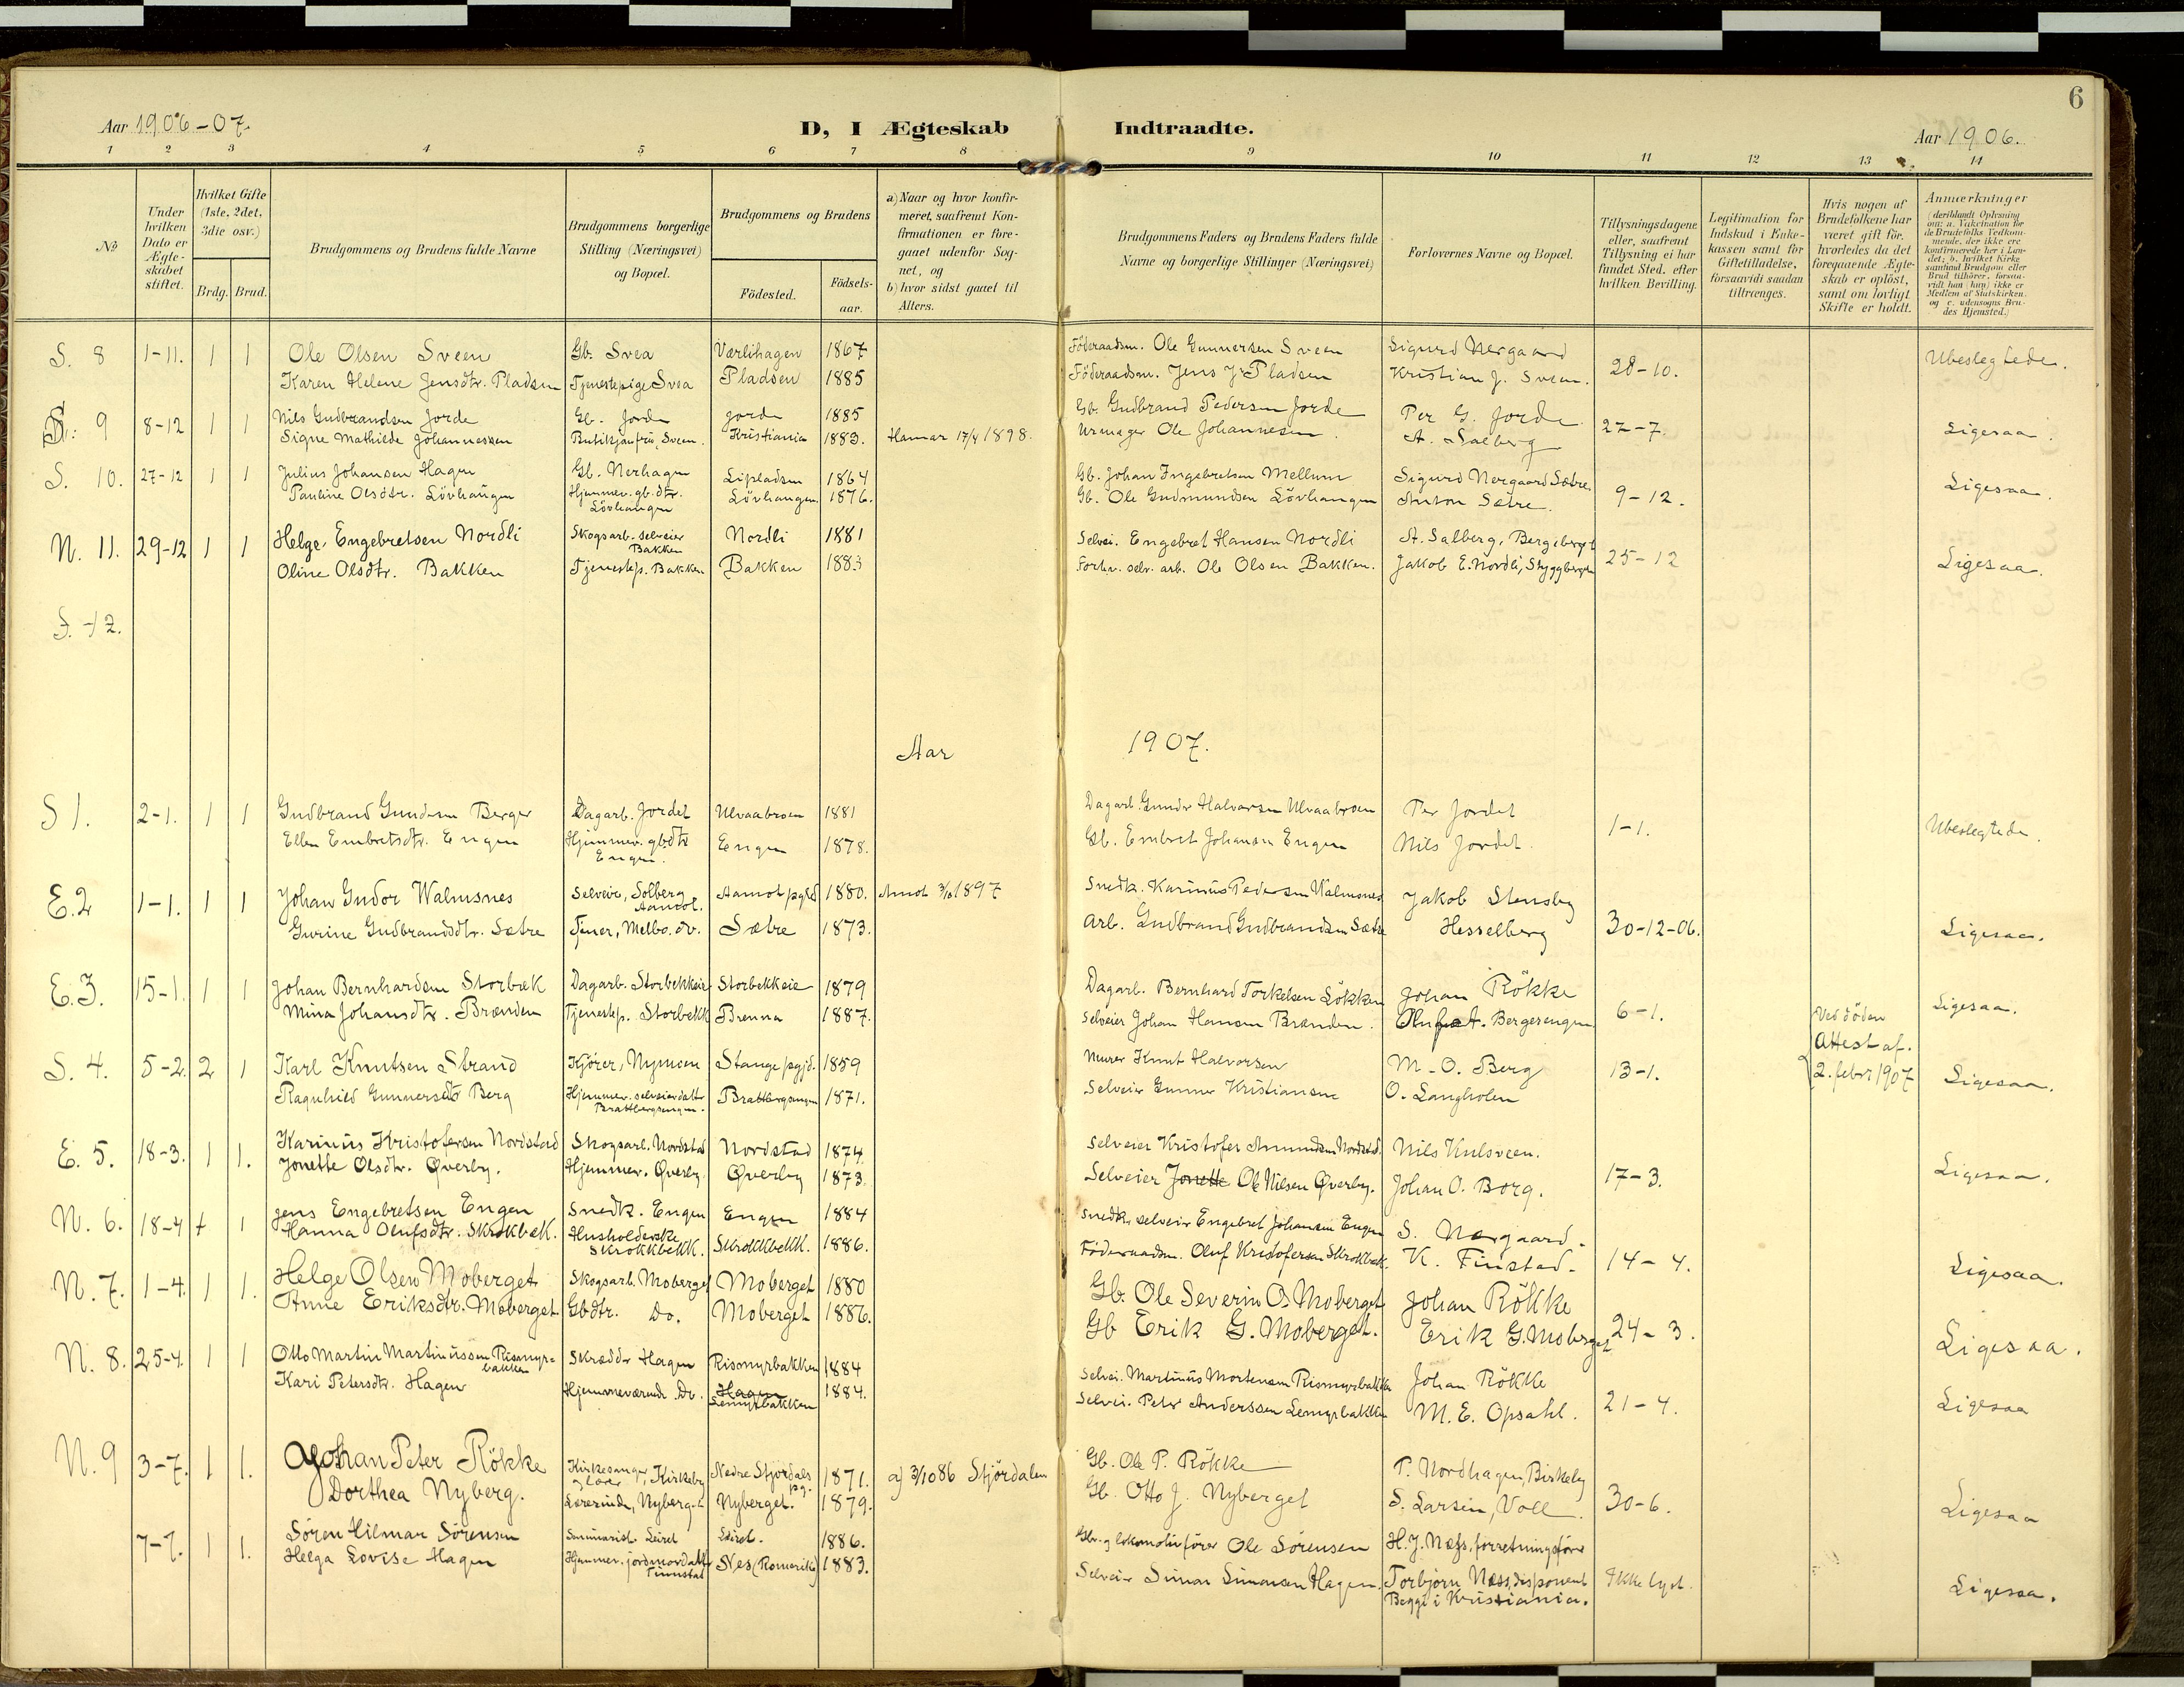 6
Aar 1906-07.
D, I Ægteskab Indtraadte.
Aar 1906.
1 2 3 4 5 6 7 8 9 10 11 12 13 14
No.
Under hvilken Dato er Ægteskabet stiftet.
Hvilket Gifte (1ste, 2det, 3die osv.)
Brdg. Brud.
Brudgommens og Brudens fulde Navne
Brudgommens borgerlige Stilling (Næringsvei) og Bopæl.
Brudgommens og Brudens
Fødested.
Fødselsaar.
a) Naar og hvor konfirmeret, saafremt Konfirmationen er foregaaet udenfor Sognet, og
b) hvor sidst gaaet til Alters.
Brudgommens Faders og Brudens Faders fulde Navne og borgerlige Stillinger (Næringsvei)
Forlovernes Navne og Bopæl.
Tillysningsdagene eller, saafremt Tillysning ei har fundet Sted, efter hvilken Bevilling.
Legitimation for Indskud i Enkekassen samt for Giftetilladelse, forsaavidt saadan tiltrænges.
Hvis nogen af Brudefolkene har været gift før, hvorledes da det foregaaende Ægteskab er opløst, samt om lovligt Skifte er holdt.
Anmærkninger (deriblandt Oplysning om: a. Vakcination for de Brudefolks Vedkommende, der ikke ere konfirmerede her i Landet; b. hvilket Kirkesamfund Brudgom eller Brud tilhører, forsaavidt han (hun) ikke er Medlem af Statskirken, og c. udensogns Brudes Hjemsted.)
S. 8 1-11. 1 1 Ole Olsen Sveen Gb. Svea Værlihagen 1867 Föderaadsm. Ole Gunnersen Sveen Sigurd Nergaard 28-10. Ubeslegtede.
Karen Helene Jensdtr. Pladsen Tjenestepige Svea Pladsen 1885 Föderaadsm. Jens J. Pladsen Kristian J. Sveen.
9 8-12 1 1 Nils Gudbrandsen Jorde Gb. Jorde Jorde 1885 Gb. Gudbrand Pedersen Jorde Per G. Jorde 27-7 Ligesaa.
Signe Mathilde Johannessen Butikjomfru, Sveen. Kristiania 1883. Hamar 17/4 1898. Urmager Ole Johannesen. A. Salberg
S. 10. 27-12 1 1 Julius Johansen Hagen Gb. Nerhagen Lipladsen 1864 Gb. Johan Ingebretsen Mellum Sigurd Nergaard Sætre 9-12. Ligesaa.
Pauline Olsdtr. Lövhaugen Hjemmev. gb.dtr. Lövhaugen Lövhaugen. 1876. Gb. Ole Gudmundsen Lövhaugen Anton Sætre.
N. 11. 29-12 1 1 Helge Engebretsen Nordli Skogsarb. selveier Bakken Nordli 1881 Selvei. Engebret Hansen Nordli A. Salberg, Bergeberget 25-12 Ligesaa.
Oline Olsdtr. Bakken Tjenestep. Bakken Bakken 1883 Forhv. selv. arb. Ole Olsen Bakken. Jakob E. Nordli, Skyggberget
S. -12.
Aar 1907.
S 1. 2-1. 1 1 Gudbrand Gundersen Berger Dagarb. Jordet Ulvaabroen 1881 Dagarb. Gunder Halvorsen Ulvaabroen Per Jordet 1-1. Ubeslegtede.
Ellen Embretsdtr. Engen Hjemmev. gbdtr Engen. Engen 1878. Gb. Embret Johansen Engen Nils Jordet.
E. 2 1-1. 1 1 Johan Gudor Walmsnes Selveier, Solberg Aamot. Aamot pgjld 1880. Amot 3/10 1897 Snedk. Karinus Pedersen Walmsnes Jakob Stensby 30-12-06. Ligesaa.
Gurine Gudbrandsdtr. Sætre Tjener, Melbo. do. Sætre 1873. Arb. Gudbrand Gudbrandsen Sætre Hesselberg
E. 3. 15-1. 1 1 Johan Bernhardsen Storbæk Dagarb. Storbekkeie Storbekkeie 1879 Dagarb. Bernhard Torkelsen Lökken Johan Rökke 6-1. Ligesaa.
Mina Johansdtr. Brænden Tjenestep. Storbekk Brenna 1887. Selveier Johan Hansen Brænden. Oluf A. Bergesengen
S. 4. 5-2. 2 1 Karl Knutsen Strand Kjörer, Nymoen Stange pgjd. 1859 Murer Knut Halvorsen M. O. Berg 13-1. Ved döden Attest af. 2. febr. 1907 Ligesaa.
Ragnhild Gunnersdtr Berg Hjemmev. selveierdatter Brattbergsengen. Brattbergsengen 1871. Selveier Gunner Kristiansen O. Langholen
E. 5. 18-3. 1 1. Karinus Kristofersen Nordstad Skogsarb. Nordstad Nordstad 1874. Selveier Kristofer Amundsen Nordstad. Nils Kulsveen. 17-3. Ligesaa.
Jonette Olsdtr. Øverby. Hjemmev. Øverby. Øverby 1873. Selveier Jonette Ole Nilsen Øverby. Johan O. Borg.
N. 6. 18-4 1 1 Jens Engebretsen Engen Snedk. Engen Engen 1884 Snedk. selveier Engebret Johansen Engen S. Nærgaard. 14-4. Ligesaa.
Hanna Olufsdtr. Skrokbæk. Husholderske Skrokkbekk. Skrokkbekk. 1886. Föderaadsm. Oluf Kristofersen Skrokbæk. K. Finstad.
N. 7. 1-4. 1 1. Helge Olsen Moberget Skogsarb. Moberget Moberget 1880 Gb. Ole Severin O. Moberget Johan Rökke 24-3. Ligesaa.
Anne Eriksdtr. Moberget Gbdtr. Do. Moberget 1886. Gb Erik G. Moberget. Erik G. Moberget
N. 8. 25-4. 1 1 Otto Martin Martinussen Rismyrbakken Skrædder Hagen Rismyrbakken 1884 Selvei. Martinus Mortensen Rismyrbakken Johan Rökke 21-4. Ligesaa
Kari Petersdtr. Hagen Hjemmeværende Do. Hagen Lemyrbakken 1884. Selvei. Peter Anderssen Lemyrbakken M. E. Opsahl.
N. 9 3-7. 1 1. Johan Peter Rökke Kirkesanger og lærer, Kirkeby Nedre Stjördals pg. 1871. a) 3/10 86 Stjördalen Gb. Ole P. Rökke P. Nordhagen, Birkeby 30-6. Ligesaa
Dorthea Nyberg. Lærerinde, Nyberget Nyberget. 1879. Gb. Otto J. Nyberget S. Larsen, Voll.
7-7. 1 1. Sören Hilmar Sörensen Seminarist. Leiret Leiret. 1886. Gbr. og lokomotivförer Ole Sörensen H. J. Næss, forretningsförer Ikke lyst. Ligesaa.
Helga Lovise Hagen Hjemmev. jordmordatter Finnstad Nes (Romerike) 1883. Selveier Simon Simonsen Hagen. Torbjörn Næss, disponent Begge i Kristiania.